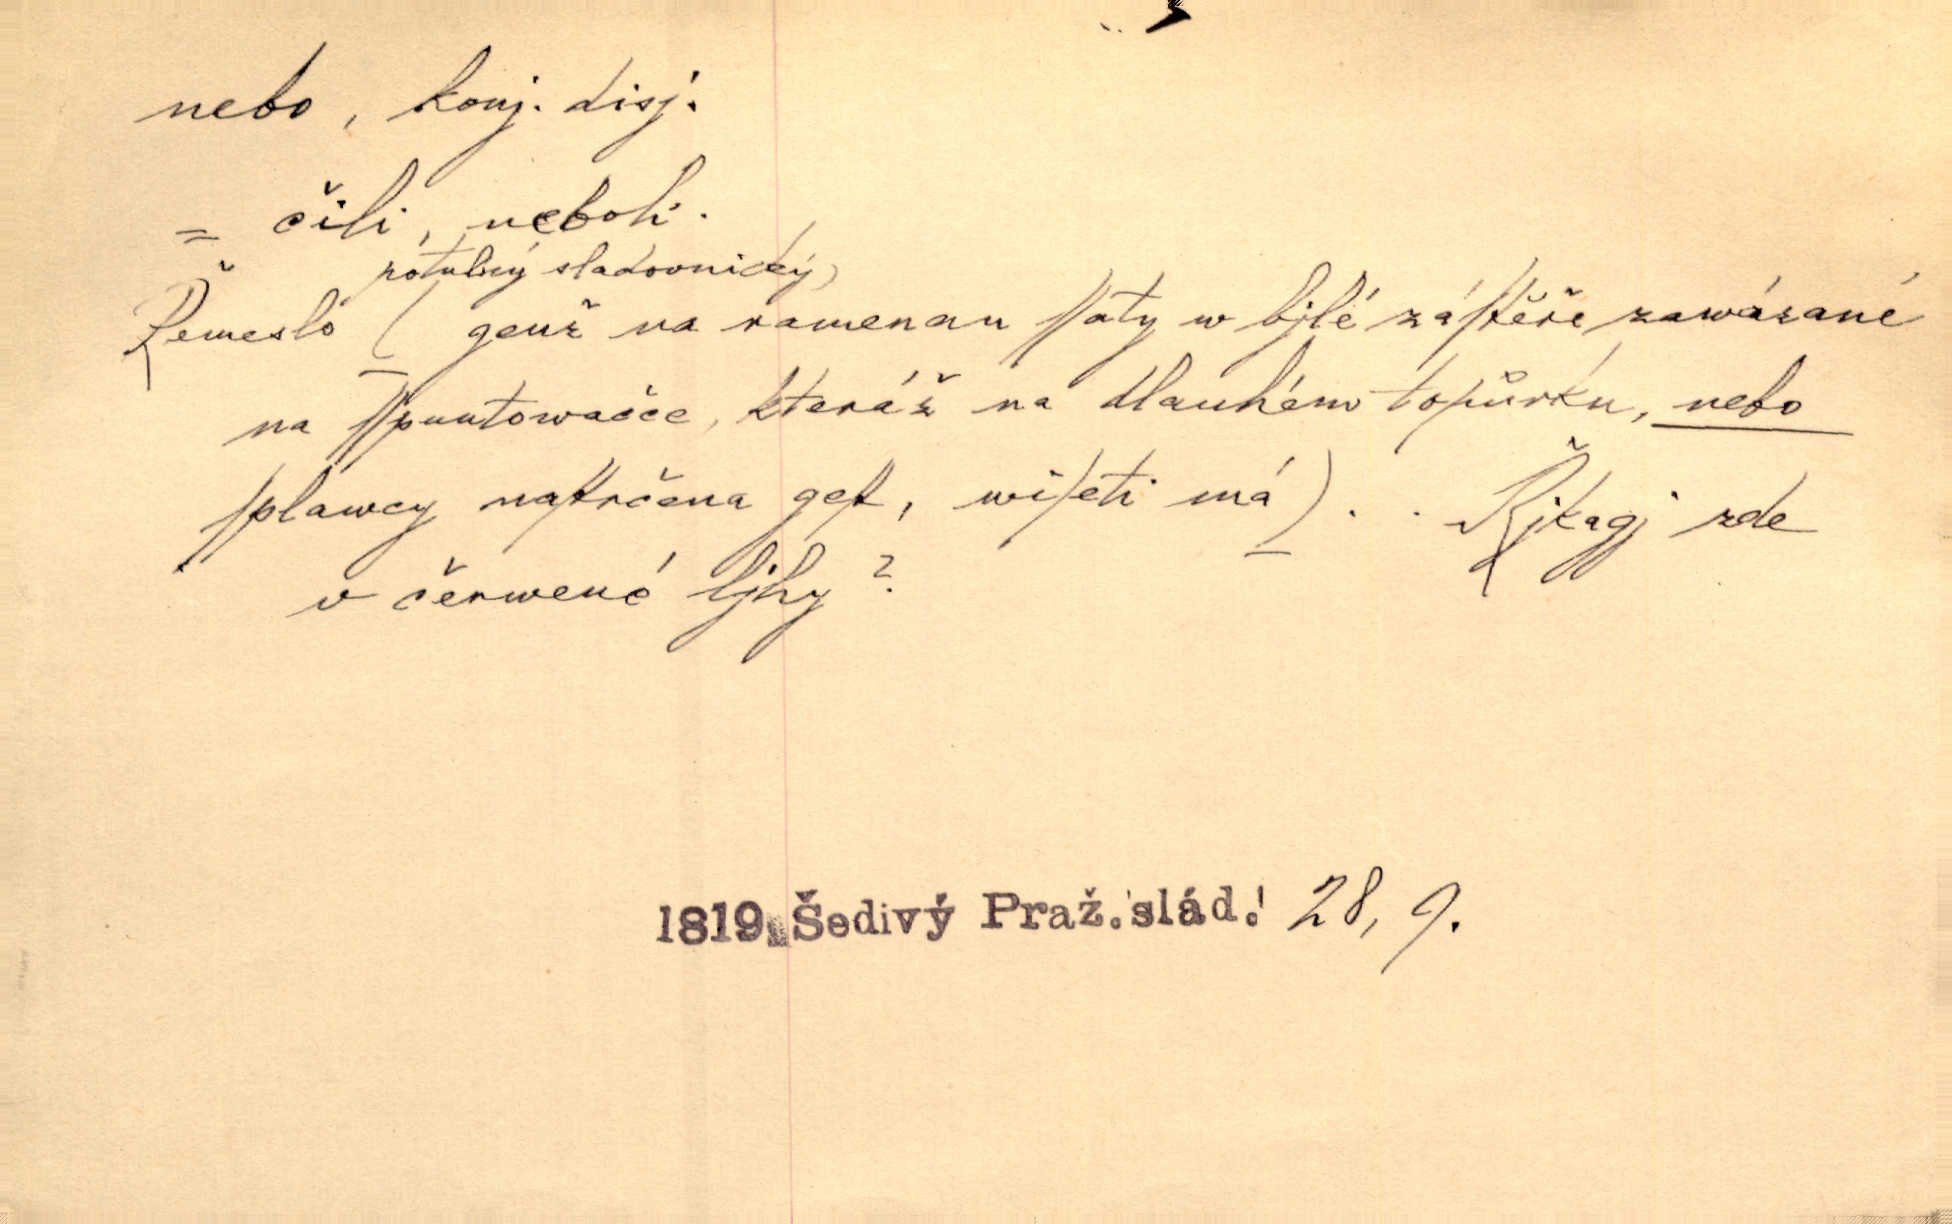 nebo, konj. disj.
= čili, neboli.
potulný sladovnický,
Řemeslo ( genž na ramenau ſſaty w bjlé záſtěře zawázané
na ſſpuntowačce, kteráž na dlauhém topůrku, nebo
ſplawcy naſtrčena geſt, wiſeti má) . . Řjkagj zde
v červené ljhy?
1819 Šedivý Praž. slád. 28, 9.